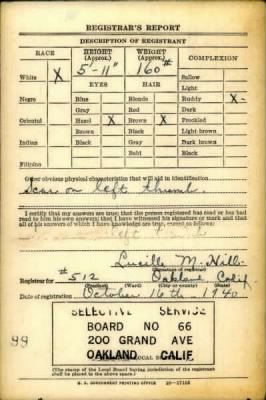 REGISTRAR'S REPORT
DESCRIPTION OF REGISTRANT
RACE HEIGHT (Approx.) WEIGHT (Approx.) COMPLEXION
5'-11" 160#
White X EYES HAIR Sallow
Light
Negro Blue Blonde Ruddy X
Gray Red Dark
Oriental Hazel X Brown X Freckled
Brown Black Light brown
Indian Black Gray Dark brown
Bald Black
Filipino
Other obvious physical characteristics that will aid in identification
Scar on left thumb.
I certify that my answers are true; that the person registered has read or has had
read to him his own answers; that I have witnessed his signature or mark and that
all of his answers of which I have knowledge are true, except as follows:
Lucille M. Hill
(Signature of registrar)
Registrar for #512 Oakland, Calif
(Precinct) (Ward) (City or county) (State)
Date of registration October 16th, 1940
SELECTIVE SERVICE
BOARD NO 66
200 GRAND AVE
OAKLAND CALIF.
99
(The stamp of the Local Board having jurisdiction of the registrant
shall be placed in the above space.)
U. S. GOVERNMENT PRINTING OFFICE 16-17105